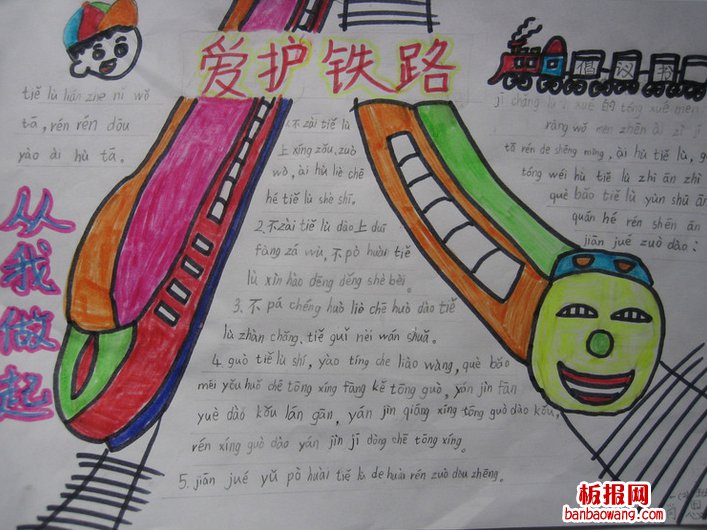 爱护铁路
倡议书
tiě lù lián zhe nǐ wǒ
tā, rén rén dōu
yào ài hù tā.
从我做起
1.不zài tiě lù
上 xíng zǒu. zuò
wò, ài hù liè chē
hé tiě lù shè shī.
2.不zài tiě lù dào上 duī
fàng zá wù, 不 pò huài tiě
lù xìn hào dēng děng shè bèi.
3. 不 pá chéng huò liè chē huò dào tiě
lù zhàn chǎng. tiě guǐ nèi wán shuǎ.
4. guò tiě lù shí, yào tíng che liào wàng, què bǎo
méi yǒu huǒ chē tōng xíng fāng kě tōng guò, yán jìn fān
yuè dào kǒu lán gān, yán jìn qiǎng xíng tōng guò dào kǒu,
rén xíng guò dào yán jìn jī dòng chē tōng xíng.
5. jiān jué yǔ pò huài tiě lù de huài rén zuò dòu zhēng.
的 tóng xué men
ràng wǒ men zhēn ài zì jǐ
tā rén de shēng mìng, ài hù tiě lù,
tóng wéi hù tiě lù zhì ān zhì
què bǎo tiě lù yùn shū ān
quán hé rén shēn ān
jiān jué zuò dào:
板报网
banbaowang.com